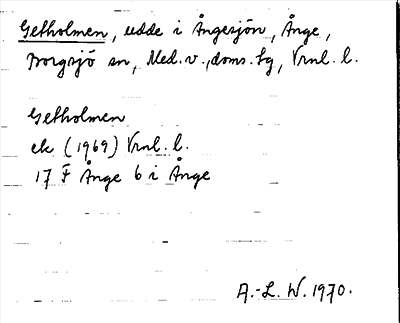 Getholmen, udde i Ångesjön, Ånge,
Borgsjö sn, Med. v. doms. tg, Vrnl. l.
Getholmen
ek (1969) Vrnl. l.
17 F Ånge 6 i Ånge
A.-L. W. 1970.